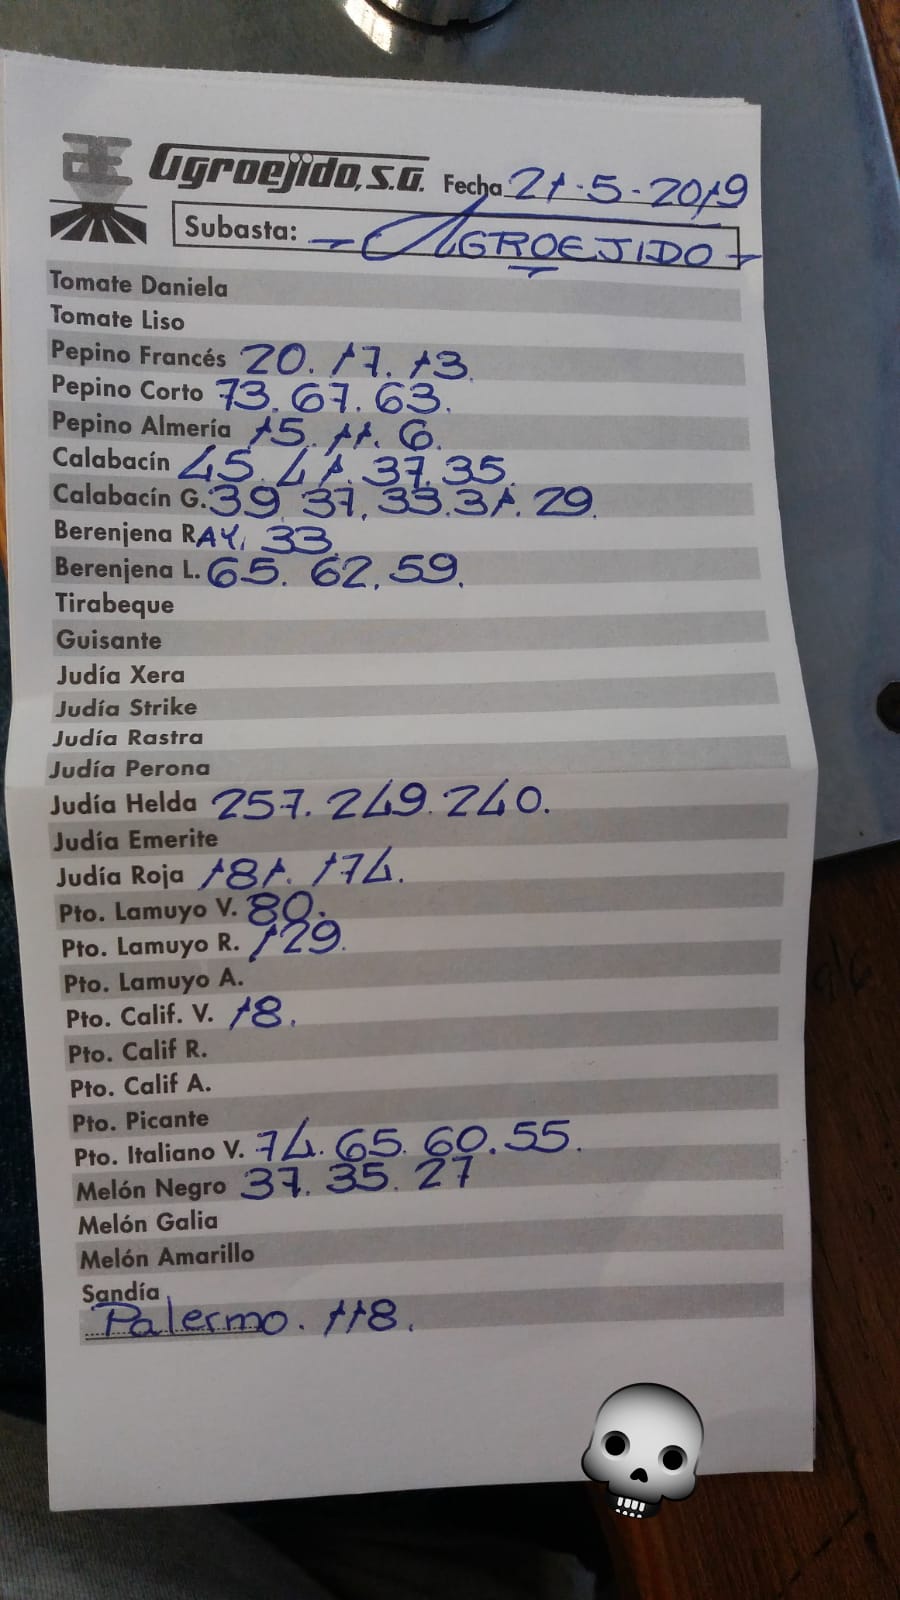 Agroejido, S.A. Fecha 21-5-2019
Subasta: - AGROEJIDO -
Tomate Daniela
Tomate Liso
Pepino Francés 20. 17. 13.
Pepino Corto 73. 67. 63.
Pepino Almería 15. 11. 6.
Calabacín 45. 41. 37. 35.
Calabacín G. 39. 37. 33. 31. 29.
Berenjena RAY. 33.
Berenjena L. 65. 62. 59.
Tirabeque
Guisante
Judía Xera
Judía Strike
Judía Rastra
Judía Perona
Judía Helda 257. 249. 240.
Judía Emerite
Judía Roja 181. 174.
Pto. Lamuyo V. 80.
Pto. Lamuyo R. 129.
Pto. Lamuyo A.
Pto. Calif. V. 18.
Pto. Calif R.
Pto. Calif A.
Pto. Picante
Pto. Italiano V. 74. 65. 60. 55.
Melón Negro 37. 35. 27
Melón Galia
Melón Amarillo
Sandía
Palermo. 118.